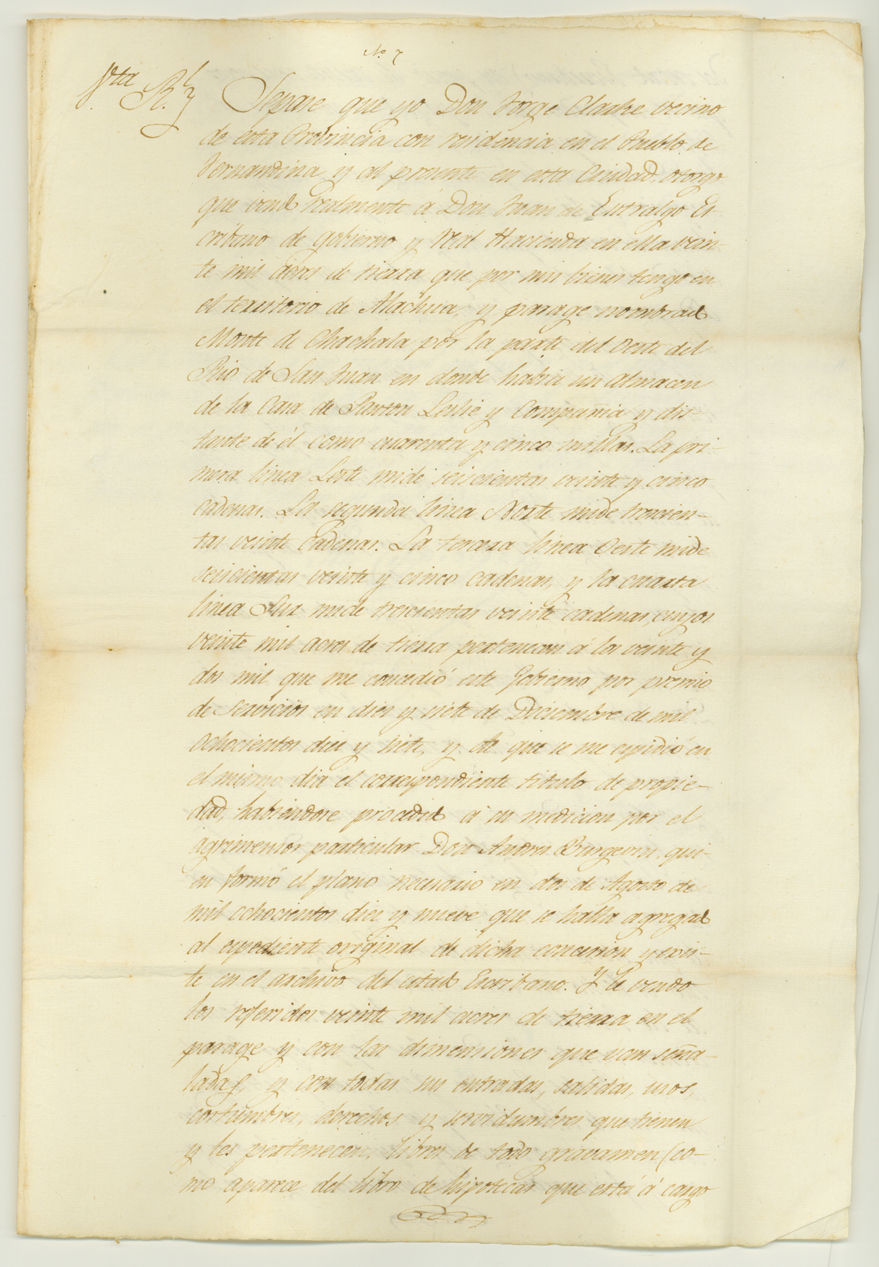 No. 7
Vta Rl
Sepase que yo Don Jorge Clarke vecino
de esta Provincia con residencia en el Pueblo de
Fernandina y al presente en esta Ciudad, otorgo
que vendo realmente a Don Juan de Entralgo Es
cribano de Gobierno y Real Hacienda en ella vein
te mil acres de tierra que por mis bienes tengo en
el territorio de Alachua, y parage nombrado
Monte de Chachala por la parte del Oeste del
Rio de San Juan en donde habia un almacen
de la Casa de Panton Leslie y Compañia y dis
tante de él como cuarenta y cinco millas. La pri-
mera linea Leste mide seiscientas veinte y cinco
cadenas. La segunda linea Norte mide trescien-
tas veinte Cadenas. La tercera linea Oeste mide
seiscientas veinte y cinco cadenas, y la cuarta
linea Sur mide trescientas veinte cadenas, cuyos
veinte mil acres de tierra pertenecen á los veinte y
dos mil que me concedió este Gobierno por premio
de servicios en diez y siete de Diciembre de mil
ochocientos diez y siete, y de que se me espidió en
el mismo dia el correspondiente titulo de propie-
dad, habiendose procedido á su medicion por el
agrimensor particular Don Andres Burgevin, qui-
en formó el plano necesario en dos de Agosto de
mil ochocientos diez y nueve que se halla agregado
al espediente original de dicha concesion y exis-
te en el archivo del citado Escribano. Y le vendo
los referidos veinte mil acres de tierra en el
parage y con las dimensiones que van seña-
ladas, y con todas sus entradas, salidas, usos,
costumbres, derechos y servidumbres que tienen
y les pertenecen, libres de todo gravamen (co-
mo aparece del libro de hipotecas que está á cargo